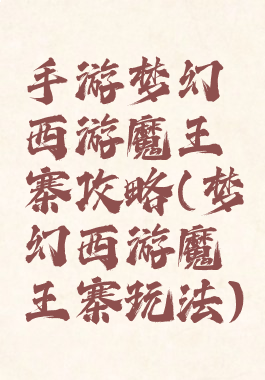 手游梦幻
西游魔王
寨攻略(梦
幻西游魔
王寨玩法)